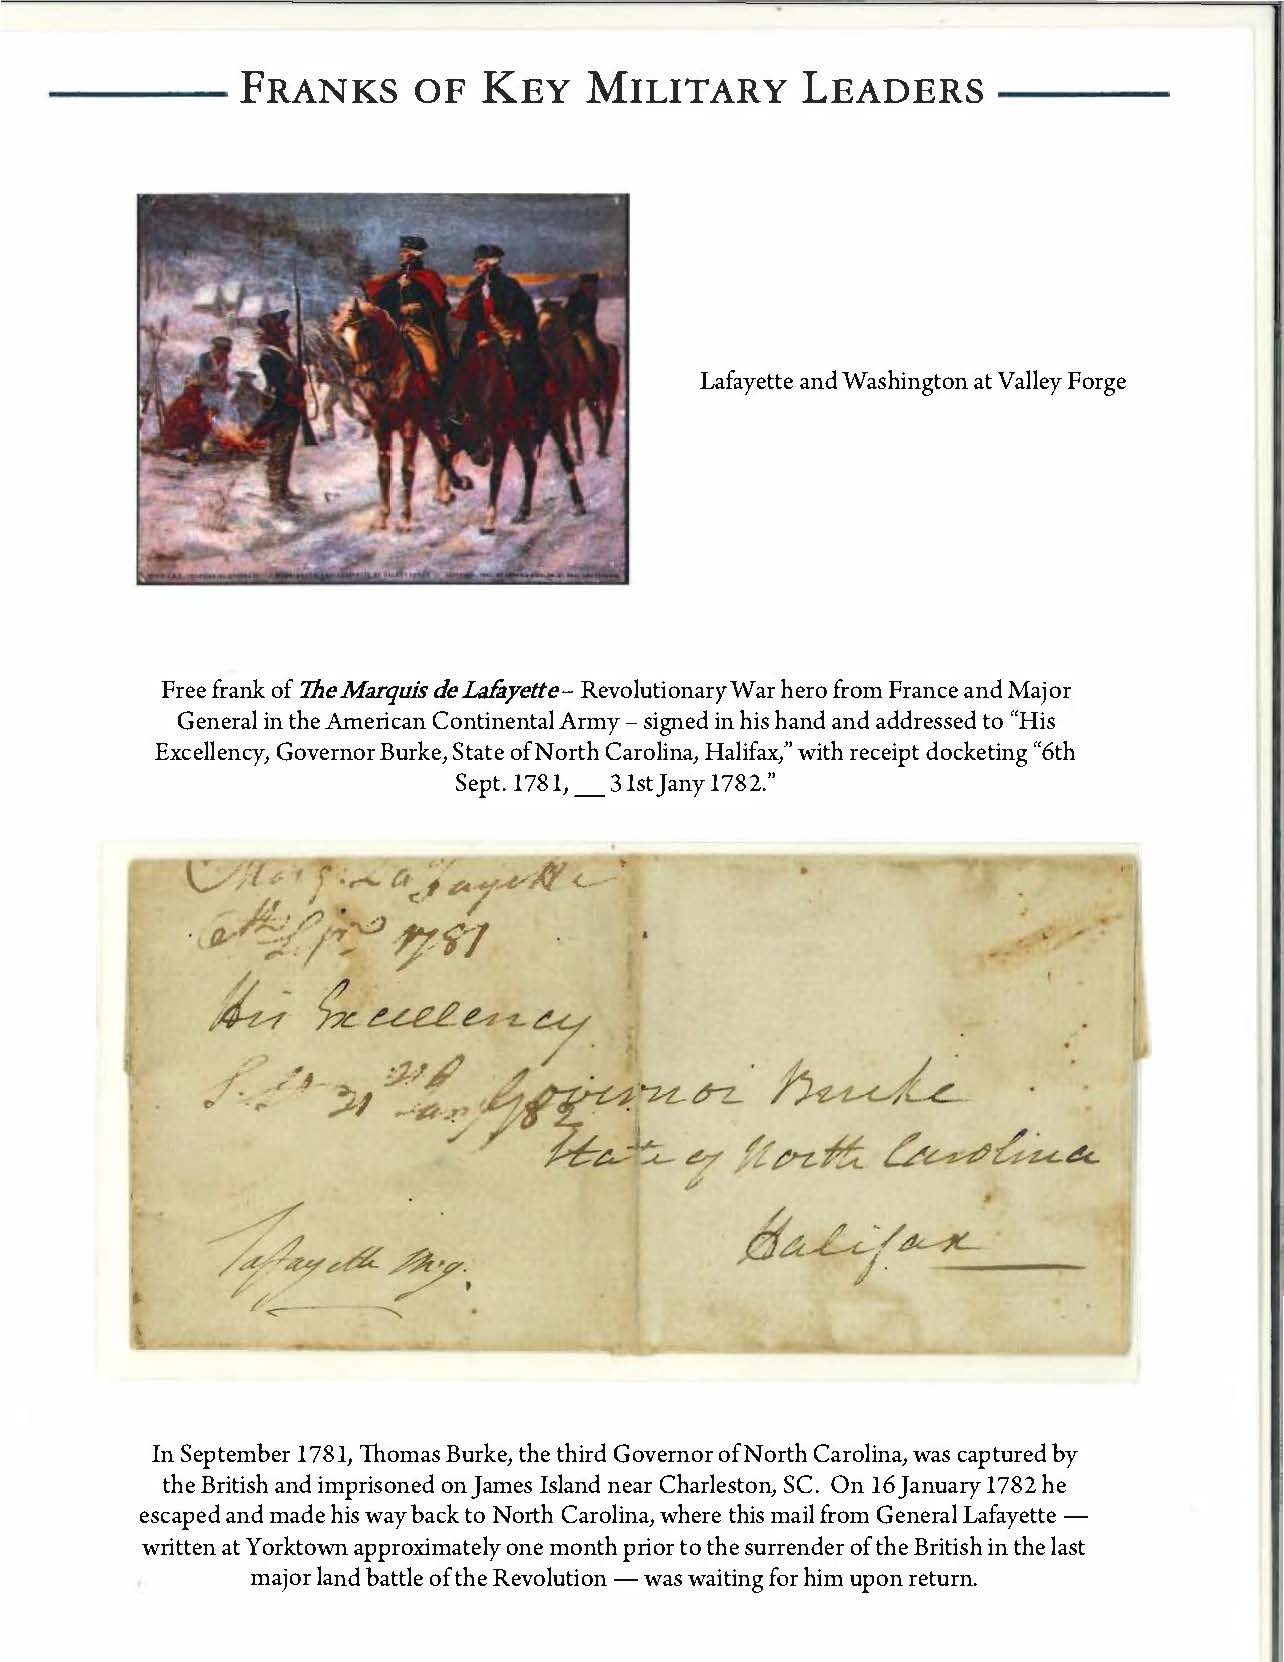 FRANKS OF KEY MILITARY LEADERS
Lafayette and Washington at Valley Forge
Free frank of The Marquis de Lafayette – Revolutionary War hero from France and Major
General in the American Continental Army – signed in his hand and addressed to “His
Excellency, Governor Burke, State of North Carolina, Halifax,” with receipt docketing “6th
Sept. 1781, __ 31st Jany 1782.”
Marq. La Fayette
6th 1781
His Excellency
31 Jany 1782
Governor Burke
State of North Carolina
Halifax
Lafayette M.g.
In September 1781, Thomas Burke, the third Governor of North Carolina, was captured by
the British and imprisoned on James Island near Charleston, SC. On 16 January 1782 he
escaped and made his way back to North Carolina, where this mail from General Lafayette —
written at Yorktown approximately one month prior to the surrender of the British in the last
major land battle of the Revolution — was waiting for him upon return.